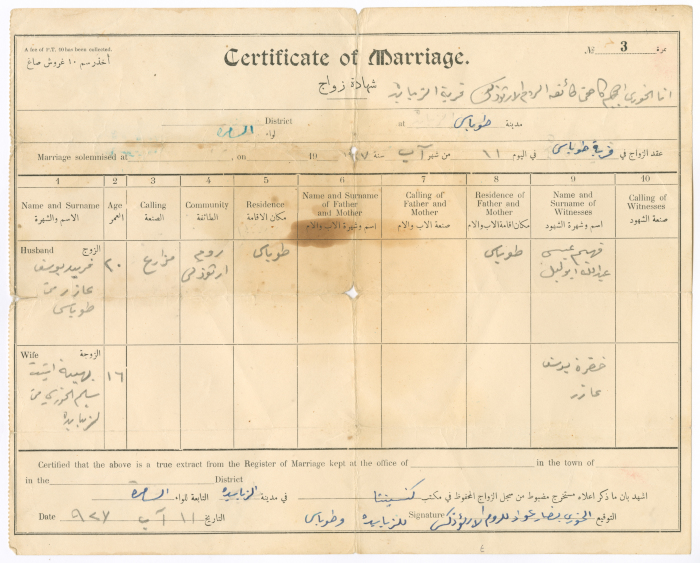 A fee of P.T. 10 has been collected.
أخذ رسم ١٠ غروش صاغ
Certificate of Marriage.
شهادة زواج
№ 3 نمرة
انا الخوري كاهن طائفة الروم الارثوذكس قرية الزبابده
District
لواء السامرة
at طوباس مدينة
Marriage solemnised at , on 19
عقد الزواج في قرية طوباس في اليوم ١١ من شهر آب سنة ١٩٢٧
1 2 3 4 5 6 7 8 9 10
Name and Surname
الاسم والشهرة
Age
العمر
Calling
الصنعة
Community
الطائفة
Residence
مكان الاقامة
Name and Surname of Father and Mother
اسم وشهرة الاب والام
Calling of Father and Mother
صنعة الاب والام
Residence of Father and Mother
مكان اقامة الاب والام
Name and Surname of Witnesses
اسم وشهرة الشهود
Calling of Witnesses
صنعة الشهود
Husband الزوج
فريد يوسف
عازر من
طوباس
٢٠
مزارع
روم
ارثوذكس
طوباس
طوباس
فهيم عيسى
عبدالله
Wife الزوجة
بهيية
سليم الخوري من
الزبابده
١٦
خضرة يوسف
عازر
Certified that the above is a true extract from the Register of Marriage kept at the office of in the town of
in the District
اشهد بان ما ذكر اعلاه مستخرج مضبوط من سجل الزواج المحفوظ في مكتب كنيستنا في مدينة الزبابده التابعة للواء السامرة
Date التاريخ ١١ آب ٩٢٧
Signature التوقيع الخوري نصار عواد للروم الارثوذكس للزبابده وطوباس